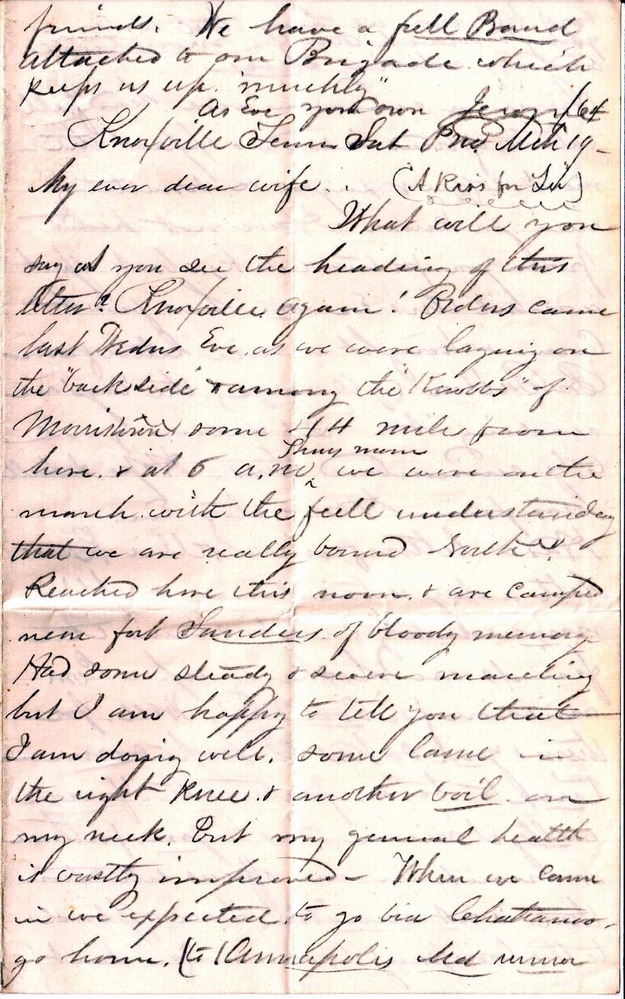 friends. We have a full Band
attached to our Brigade which
keeps us up "muchly"
As Eve your own
Knoxville Tenn Sat Mch 19 - /64
My ever dear wife. . (A Kiss for Liv)
What will you
say as you see the heading of this
letter? Knoxville, again! Orders came
last Wedns Eve. as we were laying on
the "back side" & among the "Knobbs" of
Morristown some 44 mile from
here. & at 6 a.m. Thurs morn we were on the
march. with the full understanding
that we are really bound North.
Reached here this noon. & are camped
near fort Sanders. of bloody memory
Had some steady & severe marching
but I am happy to tell you that
I am doing well. some lame in
the right knee. & another boil on
my neck. But my general health
is vastly improved - When we came
in we expected. to go via Chattanoo-
ga home. (to Annapolis Md rumor